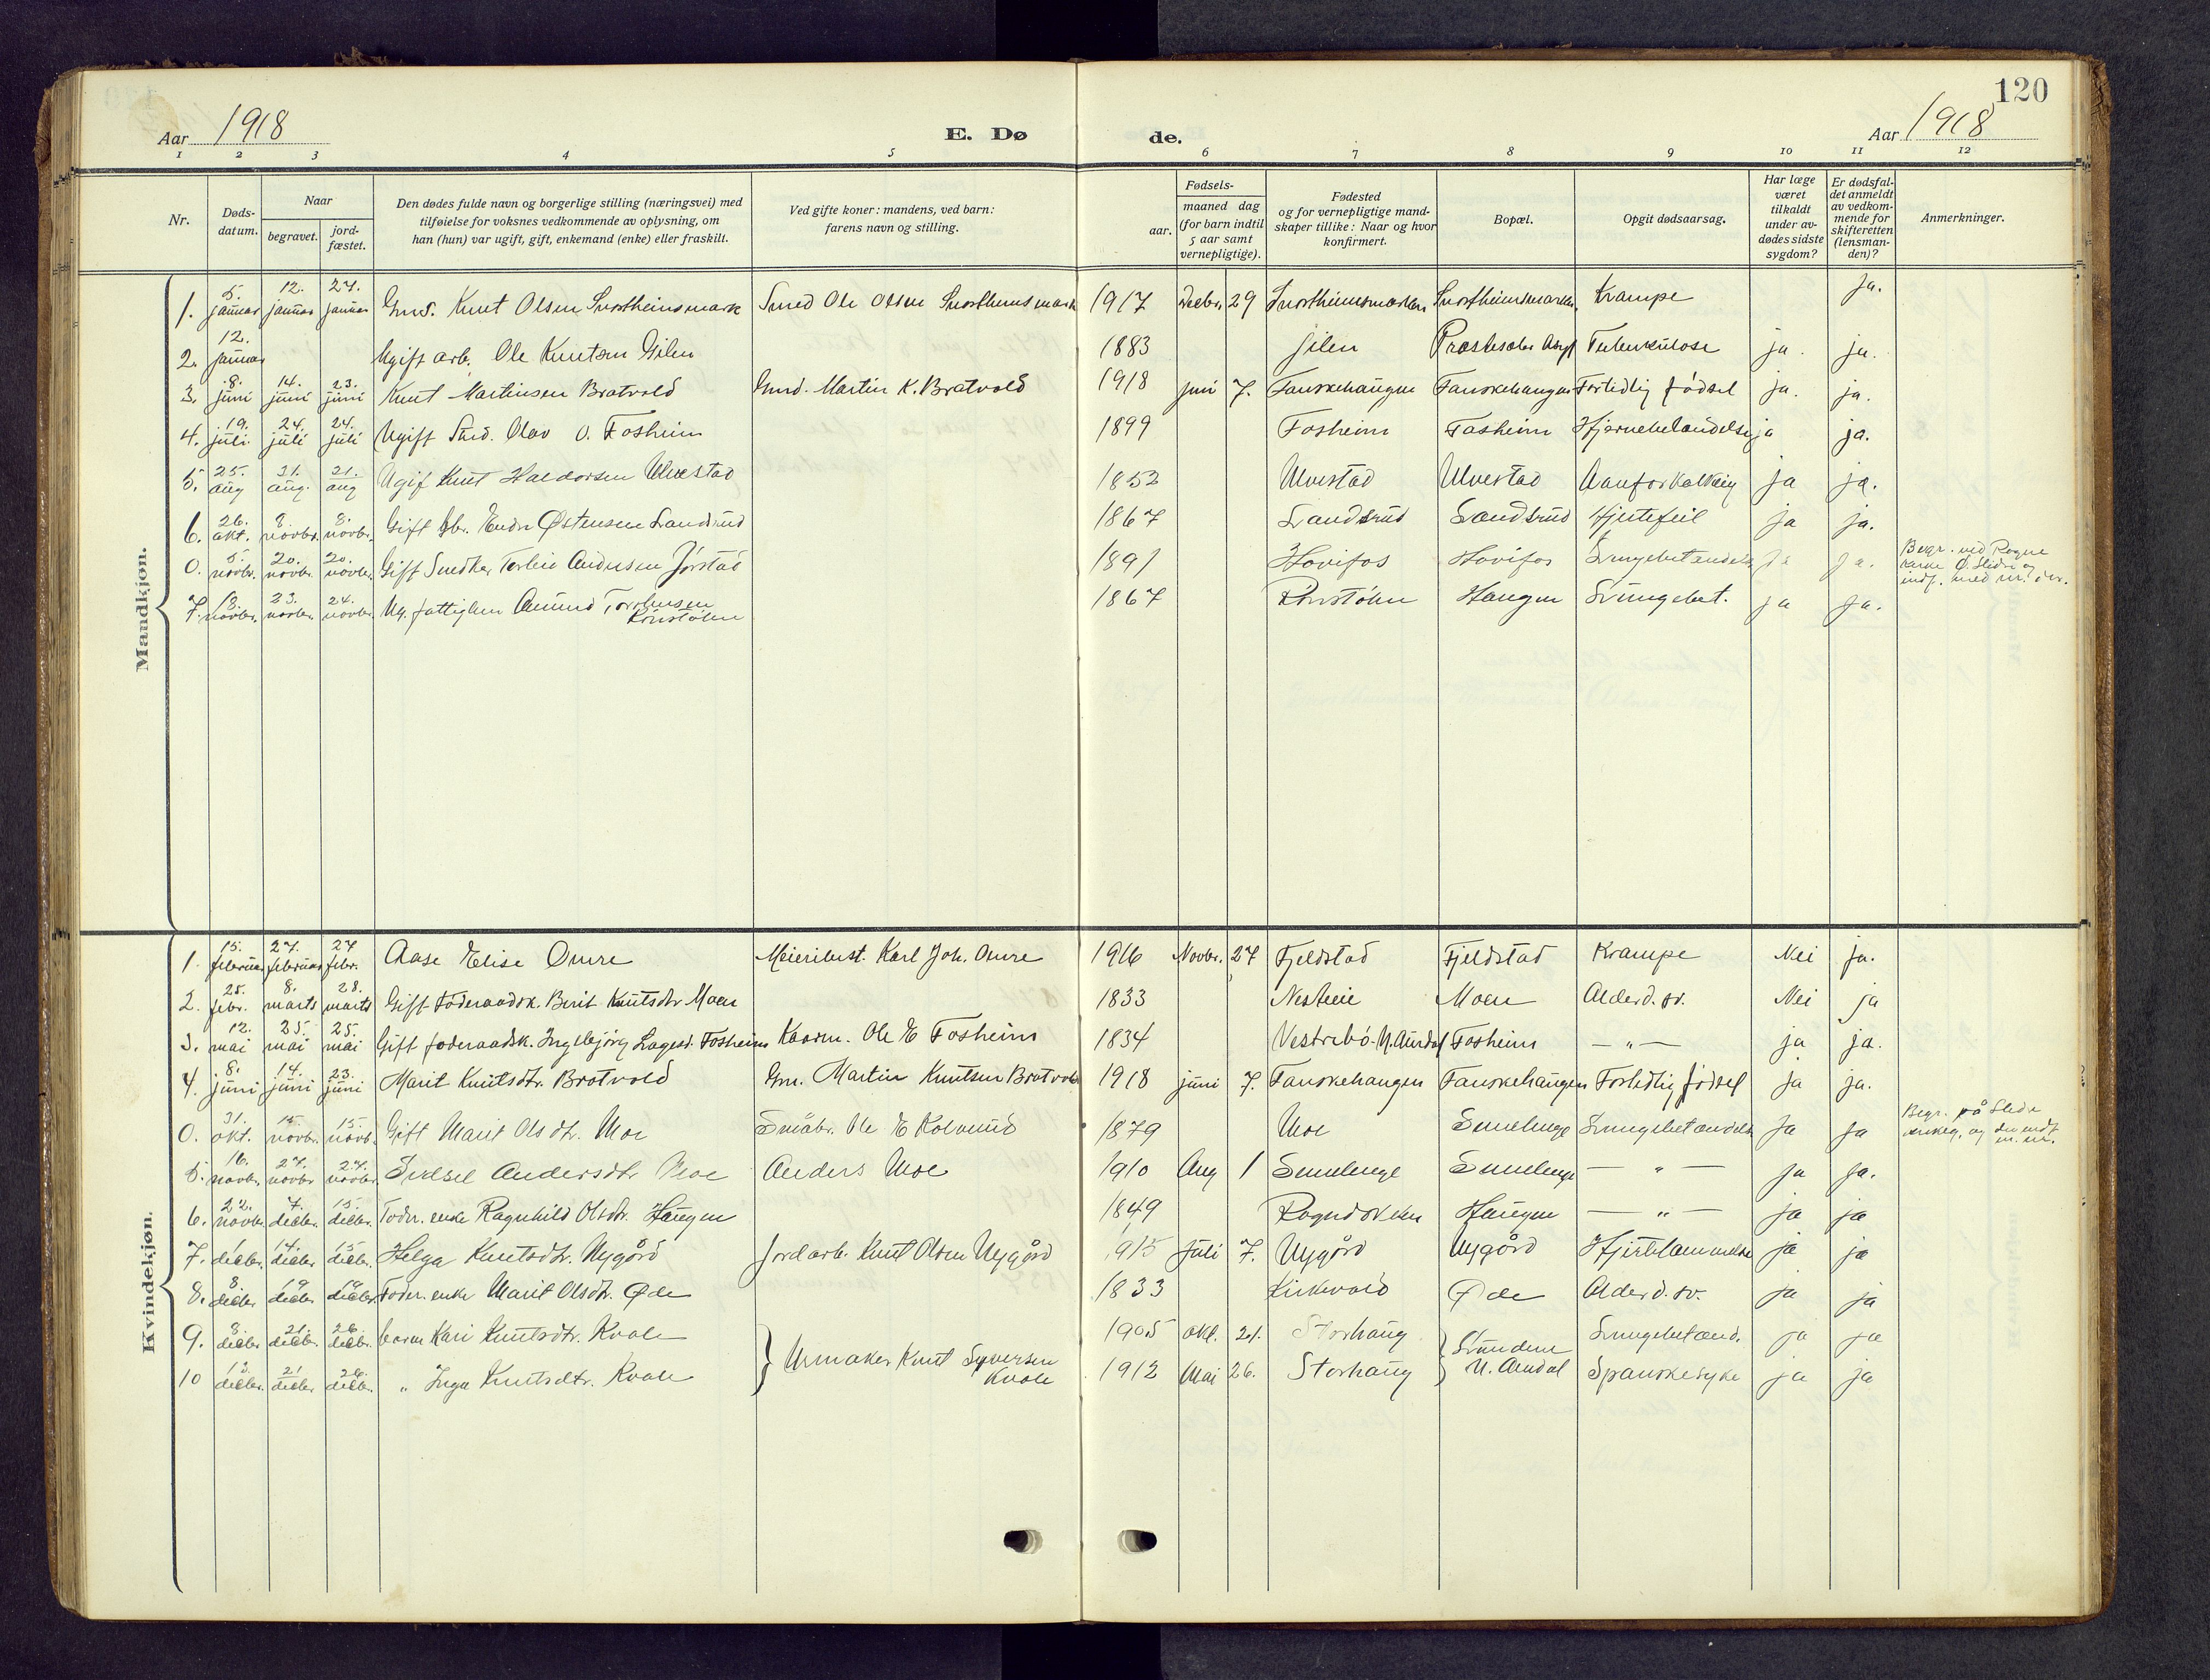 120
Aar 1918 E. Dø de. Aar 1918
1 2 3 4 5 6 7 8 9 10 11 12
Nr. Døds-datum. Naar begravet. jord-fæstet. Den dødes fulde navn og borgerlige stilling (næringsvei) med tilføielse for voksnes vedkommende av oplysning, om han (hun) var ugift, gift, enkemand (enke) eller fraskilt. Ved gifte koner: mandens, ved barn: farens navn og stilling. Fødsels- aar. maaned dag (for barn indtil 5 aar samt vernepligtige). Fødested og for vernepligtige mandskaper tillike: Naar og hvor konfirmert. Bopæl. Opgit dødsaarsag. Har læge været tilkaldt under avdødes sidste sygdom? Er dødsfaldet anmeldt av vedkommende for skifteretten (lensmanden)? Anmerkninger.
Mandkjøn.
1. 5. januar 12. januar 27. januar Knut Olsen Snortheimsmark Smed Ole Olsen Snortheimsmark 1917 Decbr. 29 Snortheimsmarken Snortheimsmarken Krampe ja.
2. 12. januar Ugift arb. Ole Knutsen Gilen 1883 Gilen Tuberkulose ja. ja.
3. 8. juni 14. juni 23. juni Knut Martinsen Bratvold Gmd. Martin K. Bratvold 1918 juni 7. Fauskehaugen Fauskehaugen Fortidlig fødsel ja. ja.
4. 19. juli 24. juli 24. juli Ugift Olav O. Fosheim 1899 Fosheim Fosheim Hjernebetændelse ja ja.
5. 25. aug 31. aug. 21. aug Ugif Knut Haldorsen Ulvestad 1852 Ulvestad Ulvestad Aareforkalkning ja ja.
6. 26. okt. 8. novbr. 8. novbr. Gift Gbr. Endre Østensen Landsrud 1867 Landsrud Landsrud Hjertefeil ja ja.
0. 5. novbr. 20. novbr. 20. novbr. Gift Snedker Torleiv Andersen Jørstad 1891 Hovifos Hovifos Lungebetændelse ja ja. Begr. ved Rogne kirke Ø. Slidre og indf. med nr. der.
7. 18. novbr. 23. novbr. 24. novbr. Ug. fattiglem Amund Torstensen Rønstølen 1867 Rønstølen Haugen Lungebet. ja ja.
Kvindekjøn.
1. 15. februar 27. februar 27 febr. Aase Elise Omre Meieribest. Karl Joh. Omre 1916 Novbr. 27 Fjeldstad Fjeldstad Krampe Nei ja.
2. 25. febr. 8. marts 28. marts Gift Føderaadsk. Berit Knutsdtr Moen 1833 Nesteeie Moen Alderd. sv. Nei ja
3. 12. mai 25. mai 25. mai Gift føderaadsk. Ingebjørg Lagesd. Fosheim Kaarm. Ole E Fosheim 1834 Vestrebø N. Aurdal Fosheim — " — ja ja.
4. 8. juni 14. juni 23. juni Marit Knutsdtr. Bratvold Gm. Martin Knutsen Bratvold 1918 juni 7. Fauskehaugen Fauskehaugen Fortidlig fødsel ja ja.
0. 31. okt. 15. novbr. 15. novb. Gift Marit Olsdtr. Moe Småbr. Ole E Kolrud 1879 Moe Semelenge Lungebetændelse ja ja Begr. på Slidre
5. 16. novbr. 27. novbr 27. novbr. Sidsel Andersdtr Moe Anders Moe 1910 Aug 1 Semelenge Semelenge — " — ja ja.
6. 22. novbr. 7. decbr. 15. decbr. Føder. enke Ragnhild Olsdtr. Haugen 1849 Haugen — " — ja ja
7. 1 decbr. 14. decbr 15. decbr. Helga Knutsdtr. Nygård Jordarb. Knut Olsen Nygård 1915 Juli 7. Nygård Nygård Hjertelammelse ja ja
8. 8. decbr 19. decbr 19. decbr. Føder. enke Marit Olsdtr. Øde 1833 Kirkevold Øde Alderd. sv. ja ja
9. 8. decbr. 21. decbr. 26. decbr. barn Kari Knutsdtr. Kvale } Urmaker Knut Syversen Kvale 1905 okt. 21. Storhaug } Strunden N. Aurdal Lungebetænd. ja ja
10 13. decbr. 21 decbr 26. decbr. " Inga Knutsdtr. Kvale 1912 Mai 26. Storhaug Spanskesyke ja ja